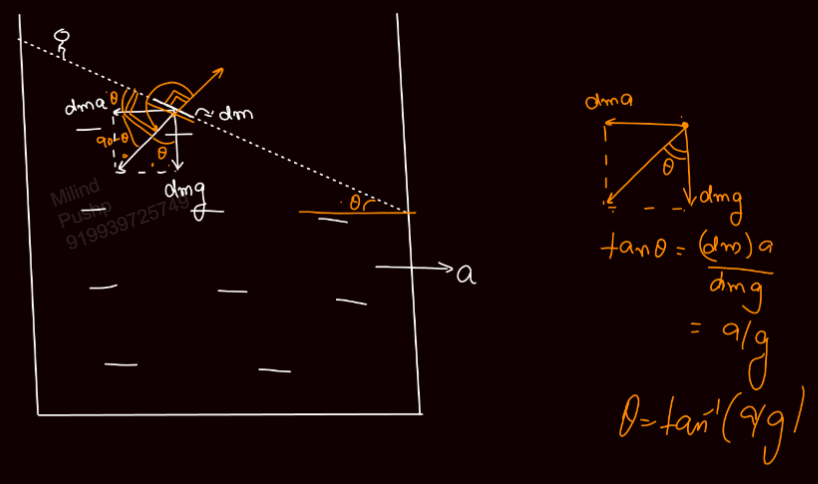 dma
θ
dm
90-θ
θ
dmg
Milind
Pushp
919939725749
θ
a
dma
θ
dmg
tanθ = (dm) a
dmg
= a/g
θ = tan⁻¹ (a/g)